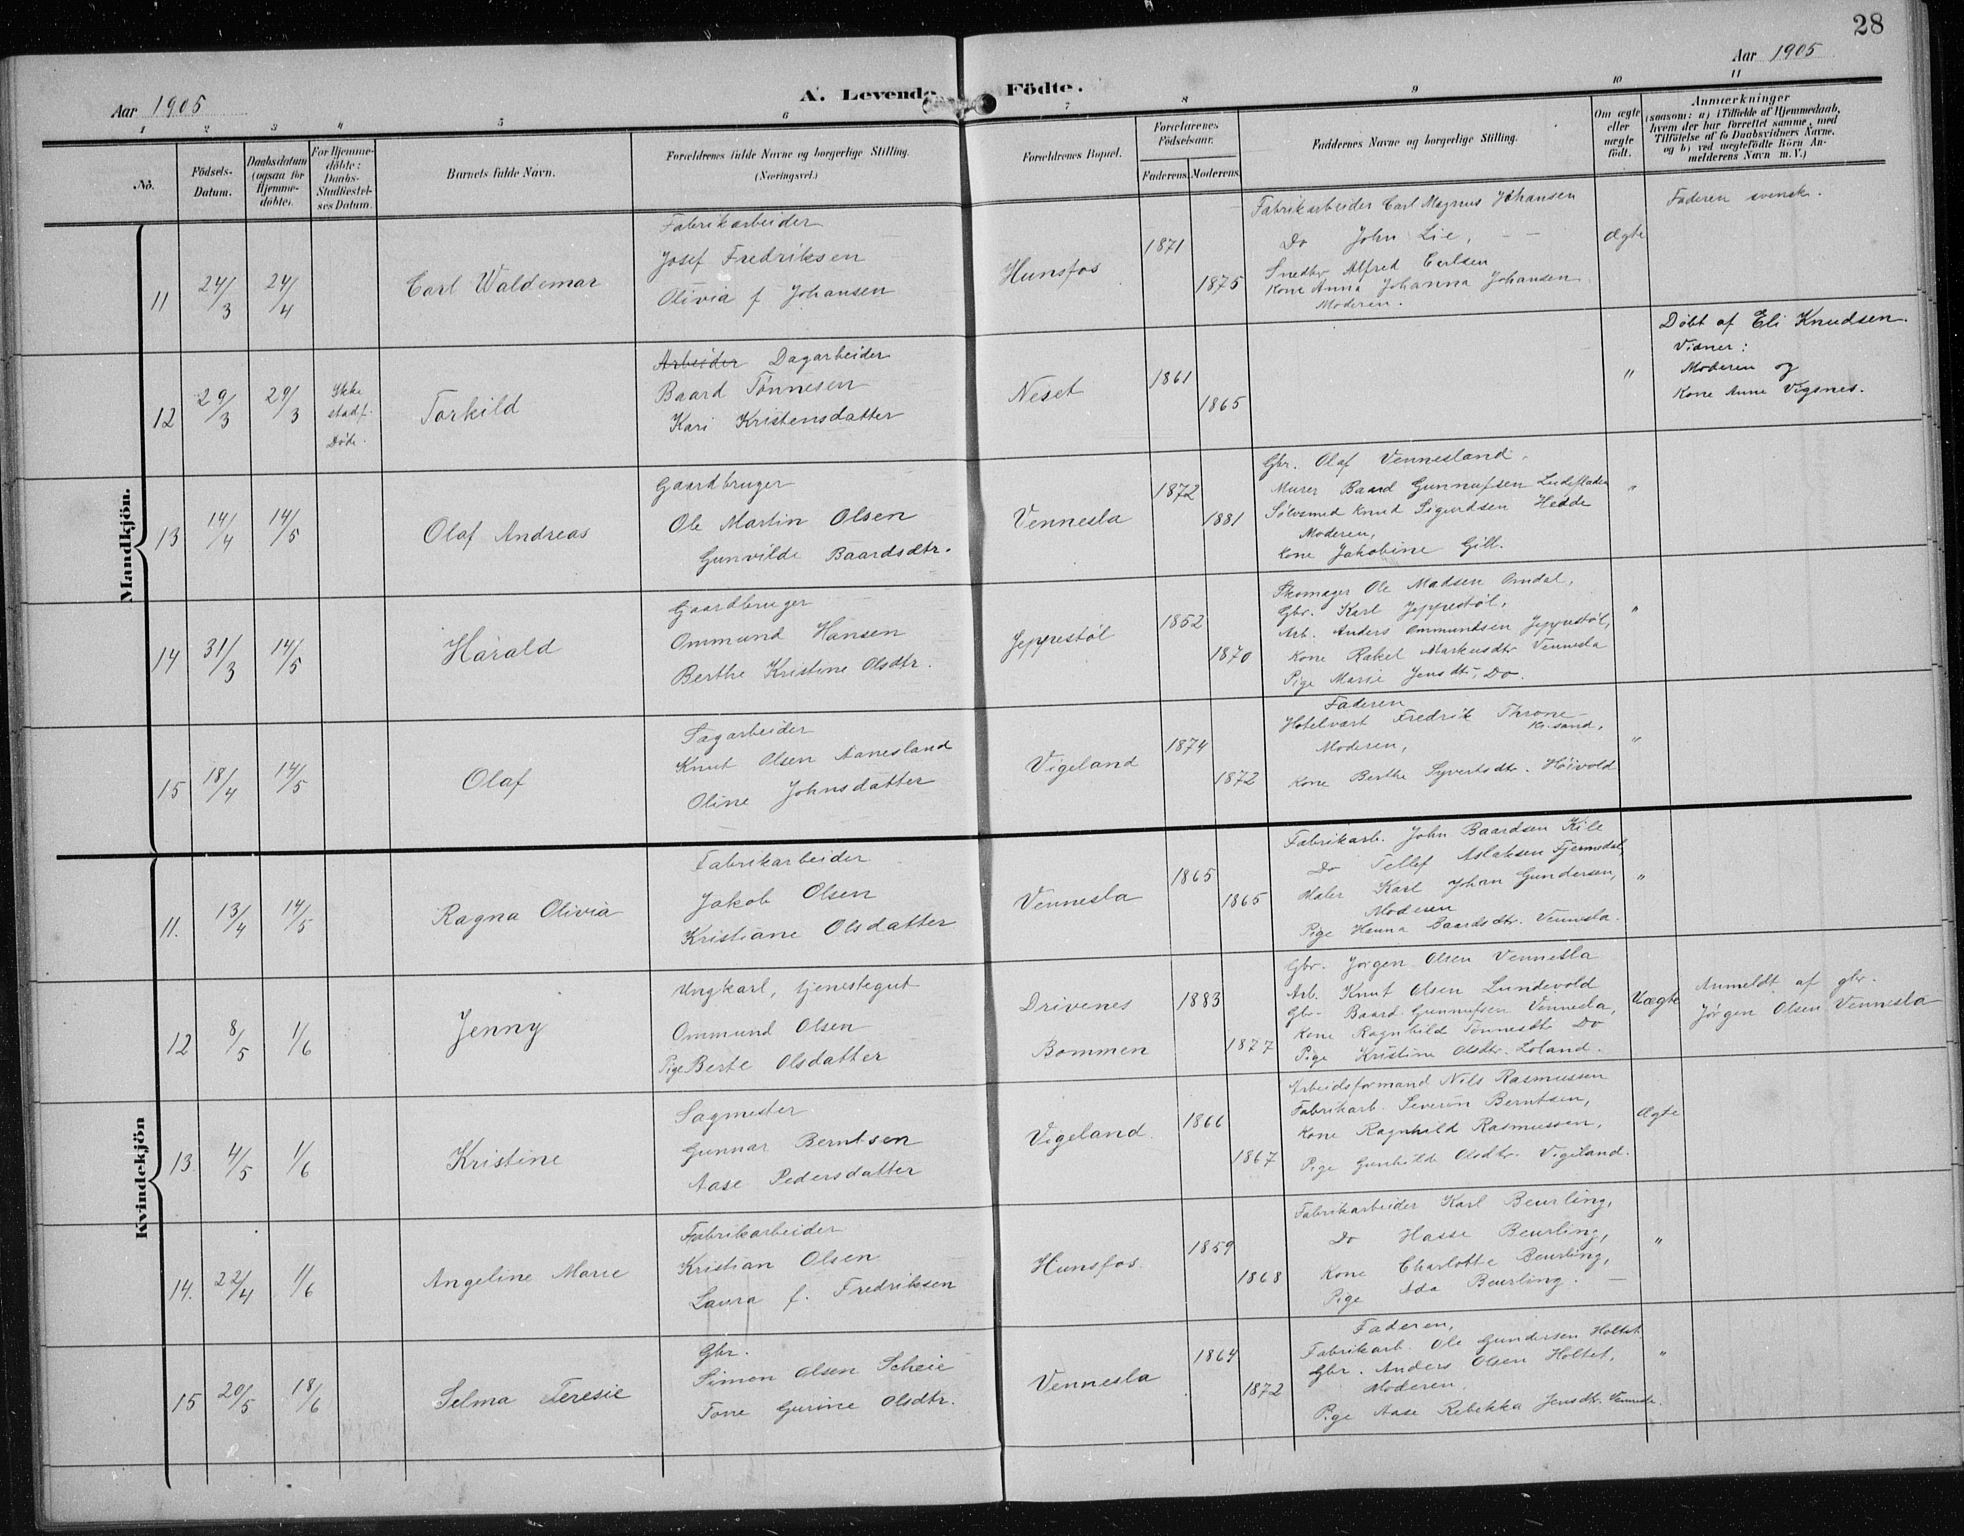 28
Aar 1905
A. Levende Födte.
Aar 1905
1 2 3 4 5 6 7 8 9 10 11
No.
Födsels-Datum.
Daabsdatum (ogsaa for Hjemme-döbte).
For Hjemme-döbte: Daabs-Stadfæstel-ses Datum.
Barnets fulde Navn.
Forældrenes fulde Navne og borgerlige Stilling.
(Næringsvei.)
Forældrenes Bopæl.
Forældrenes Födselsaar.
Faderens. Moderens.
Faddernes Navne og borgerlige Stilling.
Om ægte eller uægte födt.
Anmærkninger
(saasom: a) i Tilfælde af Hjemmedaab,
hvem der har forrettet samme, med
Tilföielse af to Daabsvidners Navne,
og b) ved uægtefödte Börn An-
melderens Navn m. V.)
Mandkjön.
11 24/3 24/4 Carl Waldemar
Fabrikarbeider
Josef Fredriksen
Olivia f Johansen
Hunsfos 1871 1875
Fabrikarbeider Carl Magnus Johansen
Do John Lie, — —
Snedkr Alfred Carlsen
Kone Anna Johanna Johansen
Moderen.
Ægte
Faderen svensk.
12 29/3 29/3 Ikke
stadf.
Døde.
Torkild
Arbeider Dagarbeider
Baard Tønnesen
Kari Kristensdatter
Neset 1861 1865
"
Døbt af Eli Knudsen.
Vidner:
Moderen og
Kone Anne Vigsnes.
13 14/4 14/5 Olaf Andreas
Gaardbruger
Ole Martin Olsen
Gunvilde Baardsdtr.
Vennesla 1872 1881
Gbr. Olaf Vennesland.
Murer Baard Gunnufsen
Sølvsmed Knud Sigurdsen Hedde
Moderen,
Kone Jakobine Gill.
"
14 31/3 14/5 Harald
Gaardbruger
Ommund Hansen
Berthe Kristine Olsdtr.
Jeppestøl 1852 1870
Skomager Ole Madsen Omdal,
Gbr. Karl Jeppestøl,
Arb. Anders Ommundsen Jeppestøl,
Kone Rakel Markusdtr Vennesla
Pige Marie Jensdtr, Do.
"
15 18/4 14/5 Olaf
Sagarbeider
Knut Olsen Aanesland
Oline Johnsdatter
Vigeland 1874 1872
Faderen
Hotelvært Fredrik Throne
Kr.sand,
Moderen,
Kone Berthe Syvertsdtr. Høivold
"
Kvindekjön
11. 13/4 14/5 Ragna Olivia
Fabrikarbeider
Jakob Olsen
Kristiane Olsdatter
Vennesla 1865 1865
Fabrikarb. John Baardsen Kile
Do Tellef Aslaksen Fjermedal,
Maler Karl Johan Gundersen,
Moderen
Pige Hanna Baardsdtr. Vennesla.
"
12 8/5 1/6 Jenny
Ungkarl, tjenestegut
Ommund Olsen
Pige Berte Olsdatter
Drivenes
Bommen
1883 1877
Gbr. Jørgen Olsen Vennesla
Arb. Knut Olsen Lundevold
Gbr. Baard Gunnufsen Vennesla,
Kone Ragnhild Tønnesdtr Do
Pige Kristine Olsdtr. Loland.
Uægte
Anmeldt af gbr.
Jørgen Olsen Vennesla
13. 4/5 1/6 Kristine
Sagmester
Gunnar Berntsen
Aase Pedersdatter
Vigeland. 1866 1867
Arbeidsformand Nils Rasmussen
Fabrikarb. Severin Berntsen,
Kone Ragnhild Rasmussen,
Pige Gunhilde Olsdtr. Vigeland.
Ægte
14. 22/4 1/6 Angeline Marie
Fabrikarbeider
Kristian Olsen
Laura f. Fredriksen
Hunsfos. 1859 1868
Fabrikarbeider Karl Beurling,
Do Hasse Beurling,
Kone Charlotte Beurling,
Pige Ada Beurling. —
"
15 20/5 18/6 Selma Teresie
Gbr.
Simen Olsen Scheie
Tone Gurine Olsdtr.
Vennesla 1864 1872
Faderen,
Fabrikarb. Ole Gundersen Holtet
Gbr. Anders Olsen Holtet,
Moderen.
Pige Aase Rebekka Jensdtr. Vennesla.
"